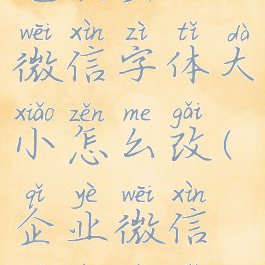 wēi xìn zì tǐ dà
微信字体大
xiǎo zěn me gǎi
小怎么改(
qǐ yè wēi xìn
企业微信